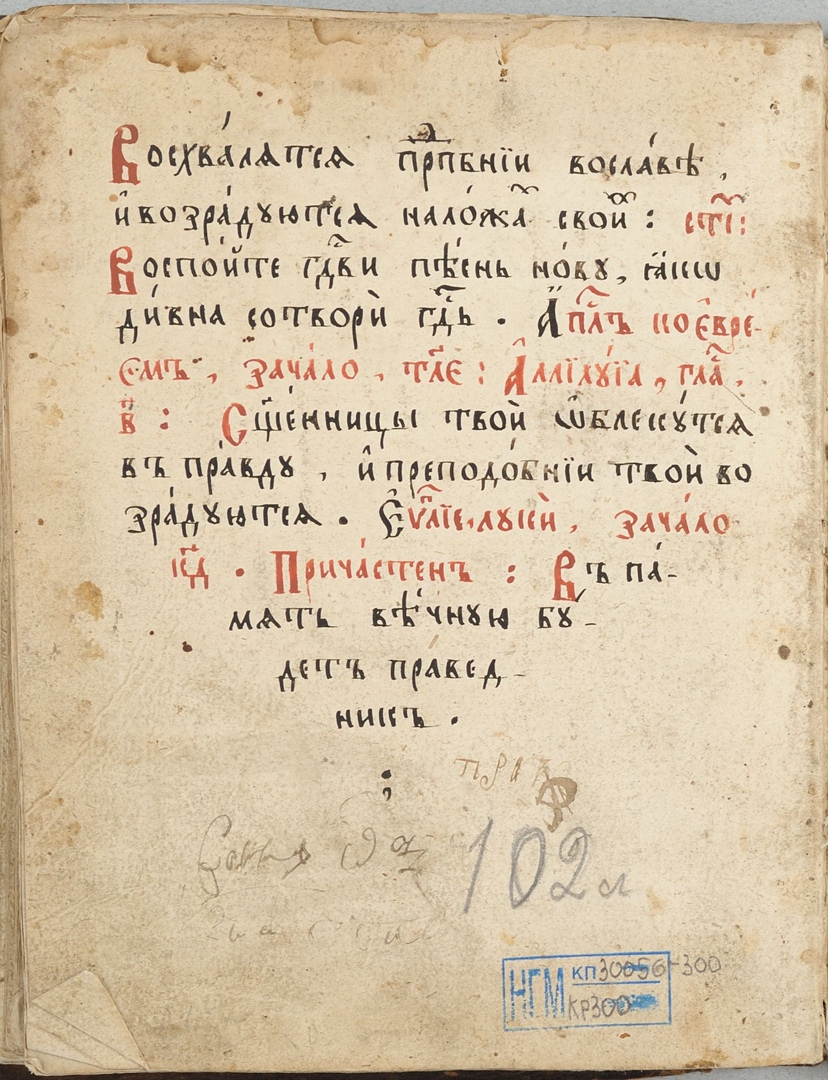 Восхва́лѧтсѧ прⷣпбнїи вославѣ,
и҆возра́дуютсѧ нало́жаⷯ свои́ⷯ : стⷯі:
Воспо́йте гдⷭ҇ви пѣ́снь но́ву, ꙗ҆кѡ
ди́вна сотворѝ гдⷭ҇ь . А҆пⷭ҇лъ коє҆вре́-
ємъ , зача́ло , тл҃є : А҆ллилꙋ́їа , гла́ⷭ ,
в҃ : Сщ҃е́нницы твоѝ ѡ҆блекꙋ́тсѧ
въ пра́вдꙋ , и҆ преподо́бнїи твоѝ во
зра́дуютсѧ . Є҆ѵⷢ҇лїе лꙋкѝ , зача́ло
к҃д . Прича́стенъ : Въ па́-
мѧть вѣ́чную бꙋ-
детъ пра́вед-
никъ .
пра
102 л
НГМ кп 30056-300
КР300